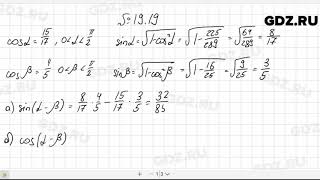 GDZ.RU
№19.19
cosα = 15/17, 0<α<π/2 sinα = √(1-cos²α) = √(1-225/289) = √(64/289) = 8/17
cosβ = 4/5 0<β<π/2 sinβ = √(1-cos²β) = √(1-16/25) = √(9/25) = 3/5
а) sin(α-β) = 8/17 · 4/5 - 15/17 · 3/5 = 32/85
б) cos(α-β)
GDZ.RU